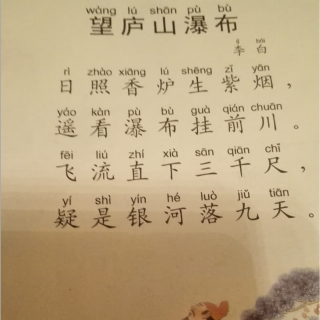 wàng lú shān pù bù
望庐山瀑布
lǐ bái
李白
rì zhào xiāng lú shēng zǐ yān
日照香炉生紫烟，
yáo kàn pù bù guà qián chuān
遥看瀑布挂前川。
fēi liú zhí xià sān qiān chǐ
飞流直下三千尺，
yí shì yín hé luò jiǔ tiān
疑是银河落九天。